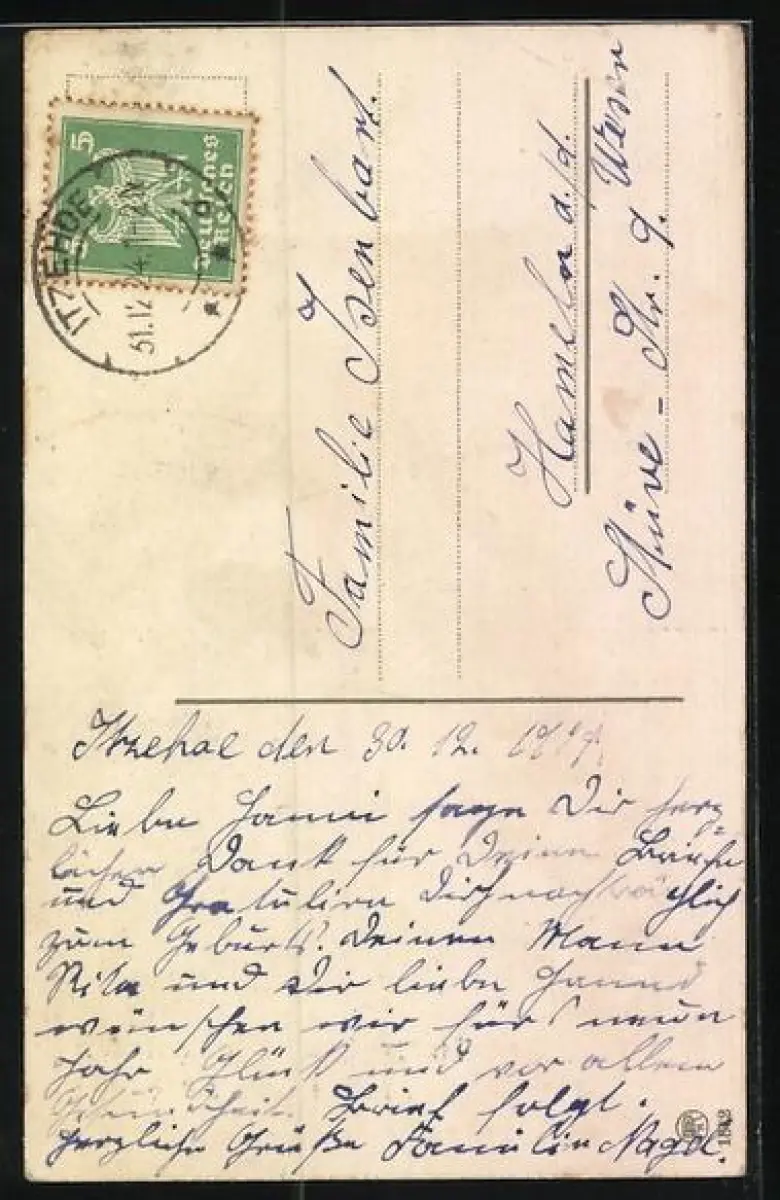 5
Deutsches
Reich
ITZEHOE
31.12.24
Familie Isenbart.
Hameln a/d. Weser
Stüve-Str. 9.
Itzehoe den 30. 12.
Liebe Hanni sage Dir herz=
lichen Dank für Deinen Brief
und Gratuliere Dich nachträglich
zum Geburts. Deinen Mann
und Dir liebe Hanni
wünschen wir fürs neue
Jahr Glück und vor allem
Gesundheit. Brief folgt.
herzliche Grüße Familie Nagel.